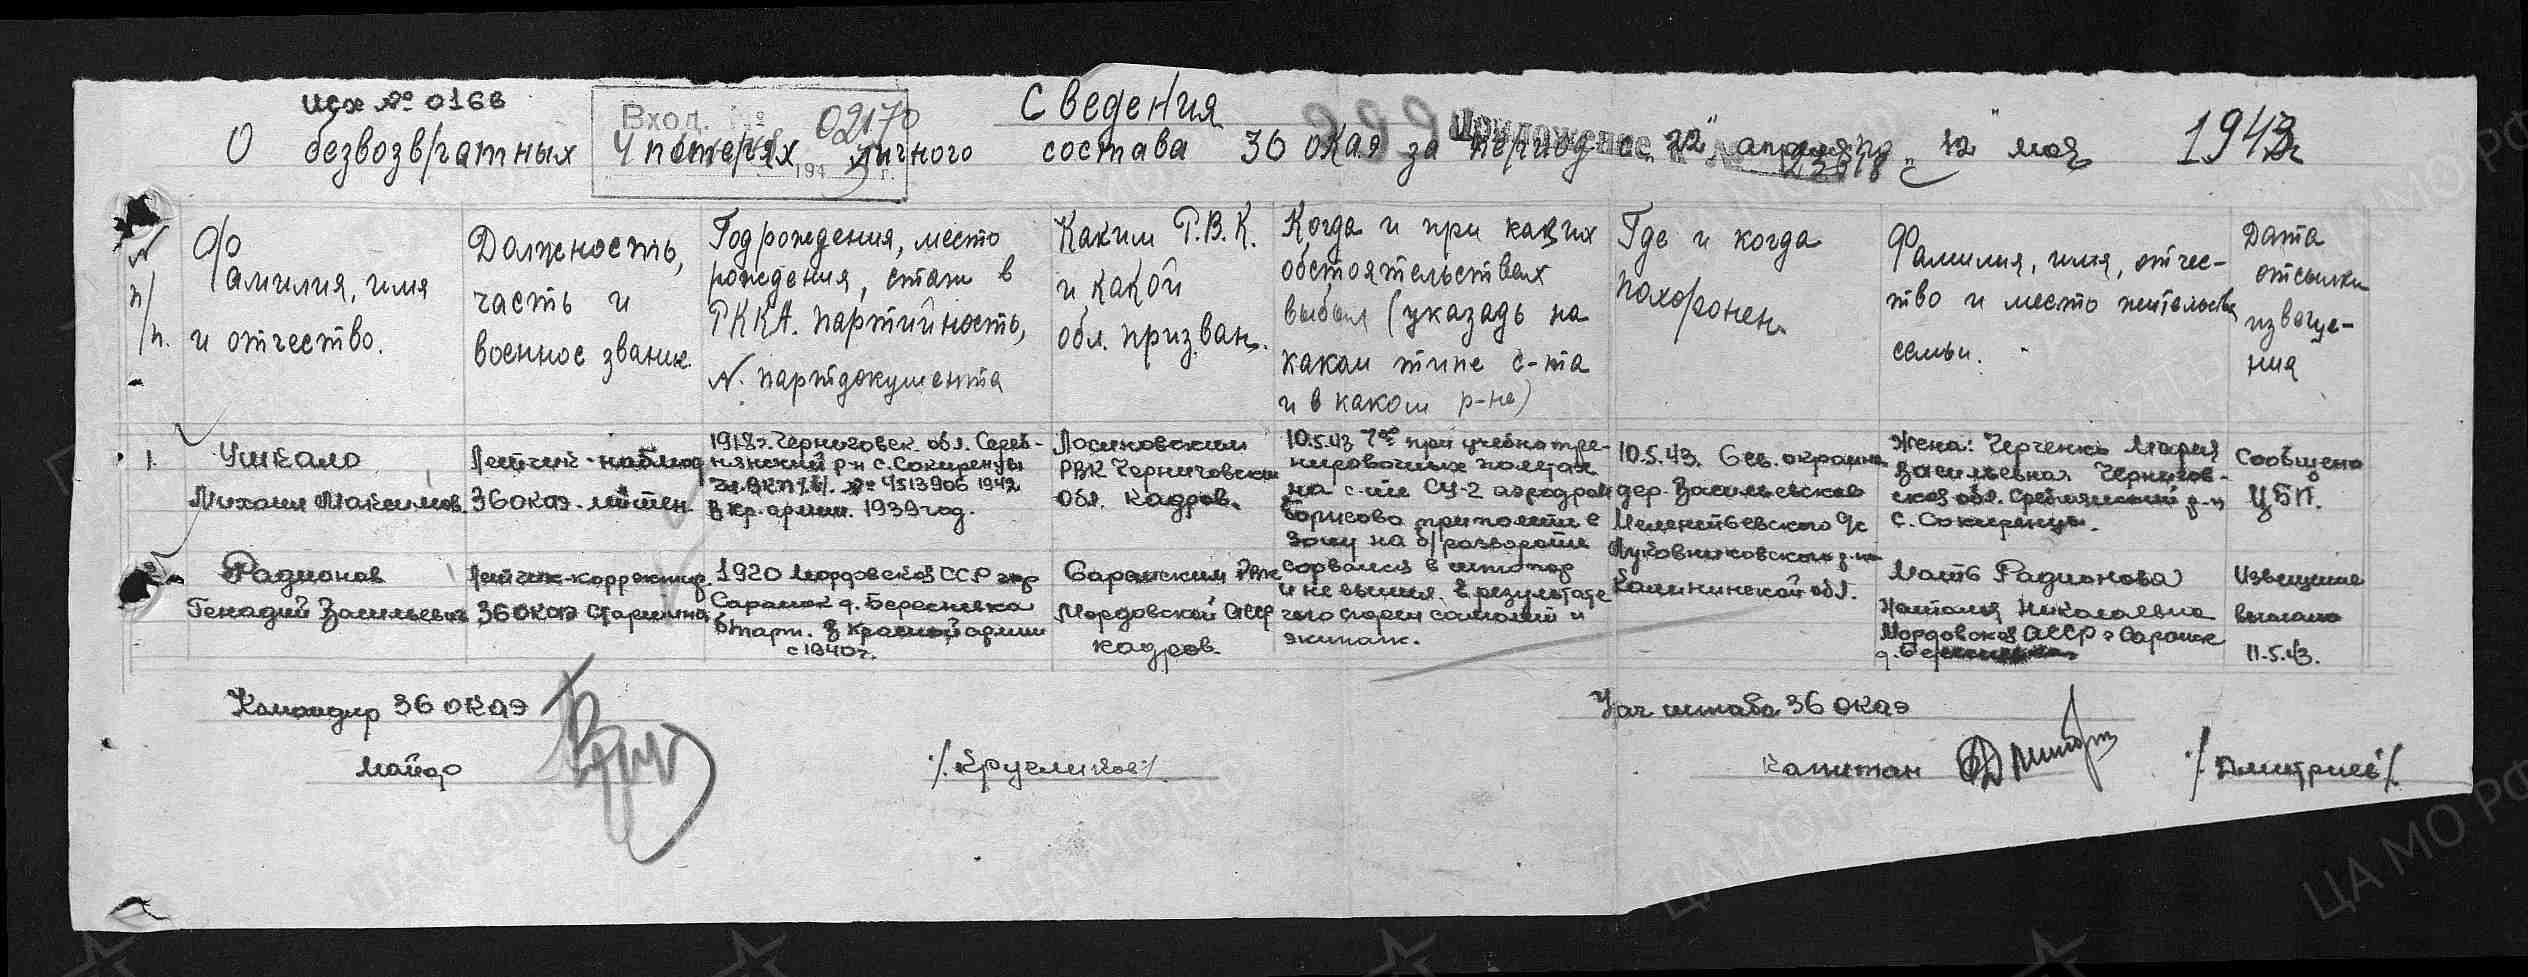 исх № 0166
Вход. № 02170
4 194 3 г.
Сведения
Приложение к № 12361в
О безвозвратных потерях личного состава 36 окаэ за период с "22" апреля по "12" мая 1943г
N п/п.
Фамилия, имя
и отчество.
Должность,
часть и
военное звание
Год рождения, место
рождения, стаж в
РККА. партийность,
N. партдокумента
Каким Р.В.К.
и какой
обл. призван.
Когда и при каких
обстоятельствах
выбыл (указадь на
каком типе с-та
и в каком р-не)
Где и когда
похоронен.
Фамилия, имя, отчес-
тво и место жительства
семьи.
Дата
отсылки
извеще-
ния
1.
Ушкало
Михаил Максимов.
Летчик-наблюд
36 окаэ - лейтен.
1918г. Черниговск. обл. Сереб-
нянский р-н с. Сокиренцы
чл. ВКП/б/. № 4513906 1942
в кр. армии. 1939 год.
Лосиновским
РВК Черниговской
обл. Кадров.
10.5.43 при учебнотре-
нировочных полетах
на с-те СУ-2 аэродром
Борисово при полете в
зону на б/развороте
сорвался в штопор
и не вышел. в результате
чего сгорел самолет и
экипаж.
10.5.43. Сев. окраина
дер. Васильевское
Мелентьевского с/с
Луковниковского р-на
Калининской обл.
Жена: Черченко Мария
Васильевна Чернигов-
ская обл. Сребнянский р-н
с. Сокиренцы.
Сообщено
в
ЦБП.
2.
Радионов
Генадий Васильевич
Летчик-корректир.
36 окаэ Старшина
1920 Мордовской ССР гор
Саранск д. Бересневка
б/парт. в Красной армии
с 1940г.
Саранским РВК
Мордовской АССР
кадров.
Мать Радионова
Наталья Николаевна
Мордовской АССР г Саранск
Извещение
выслано
11.5.43.
Командир 36 окаэ
майор
/Кругликов/.
Нач штаба 36 окаэ
Капитан
/Дмитриев/.
ЦА МО РФ